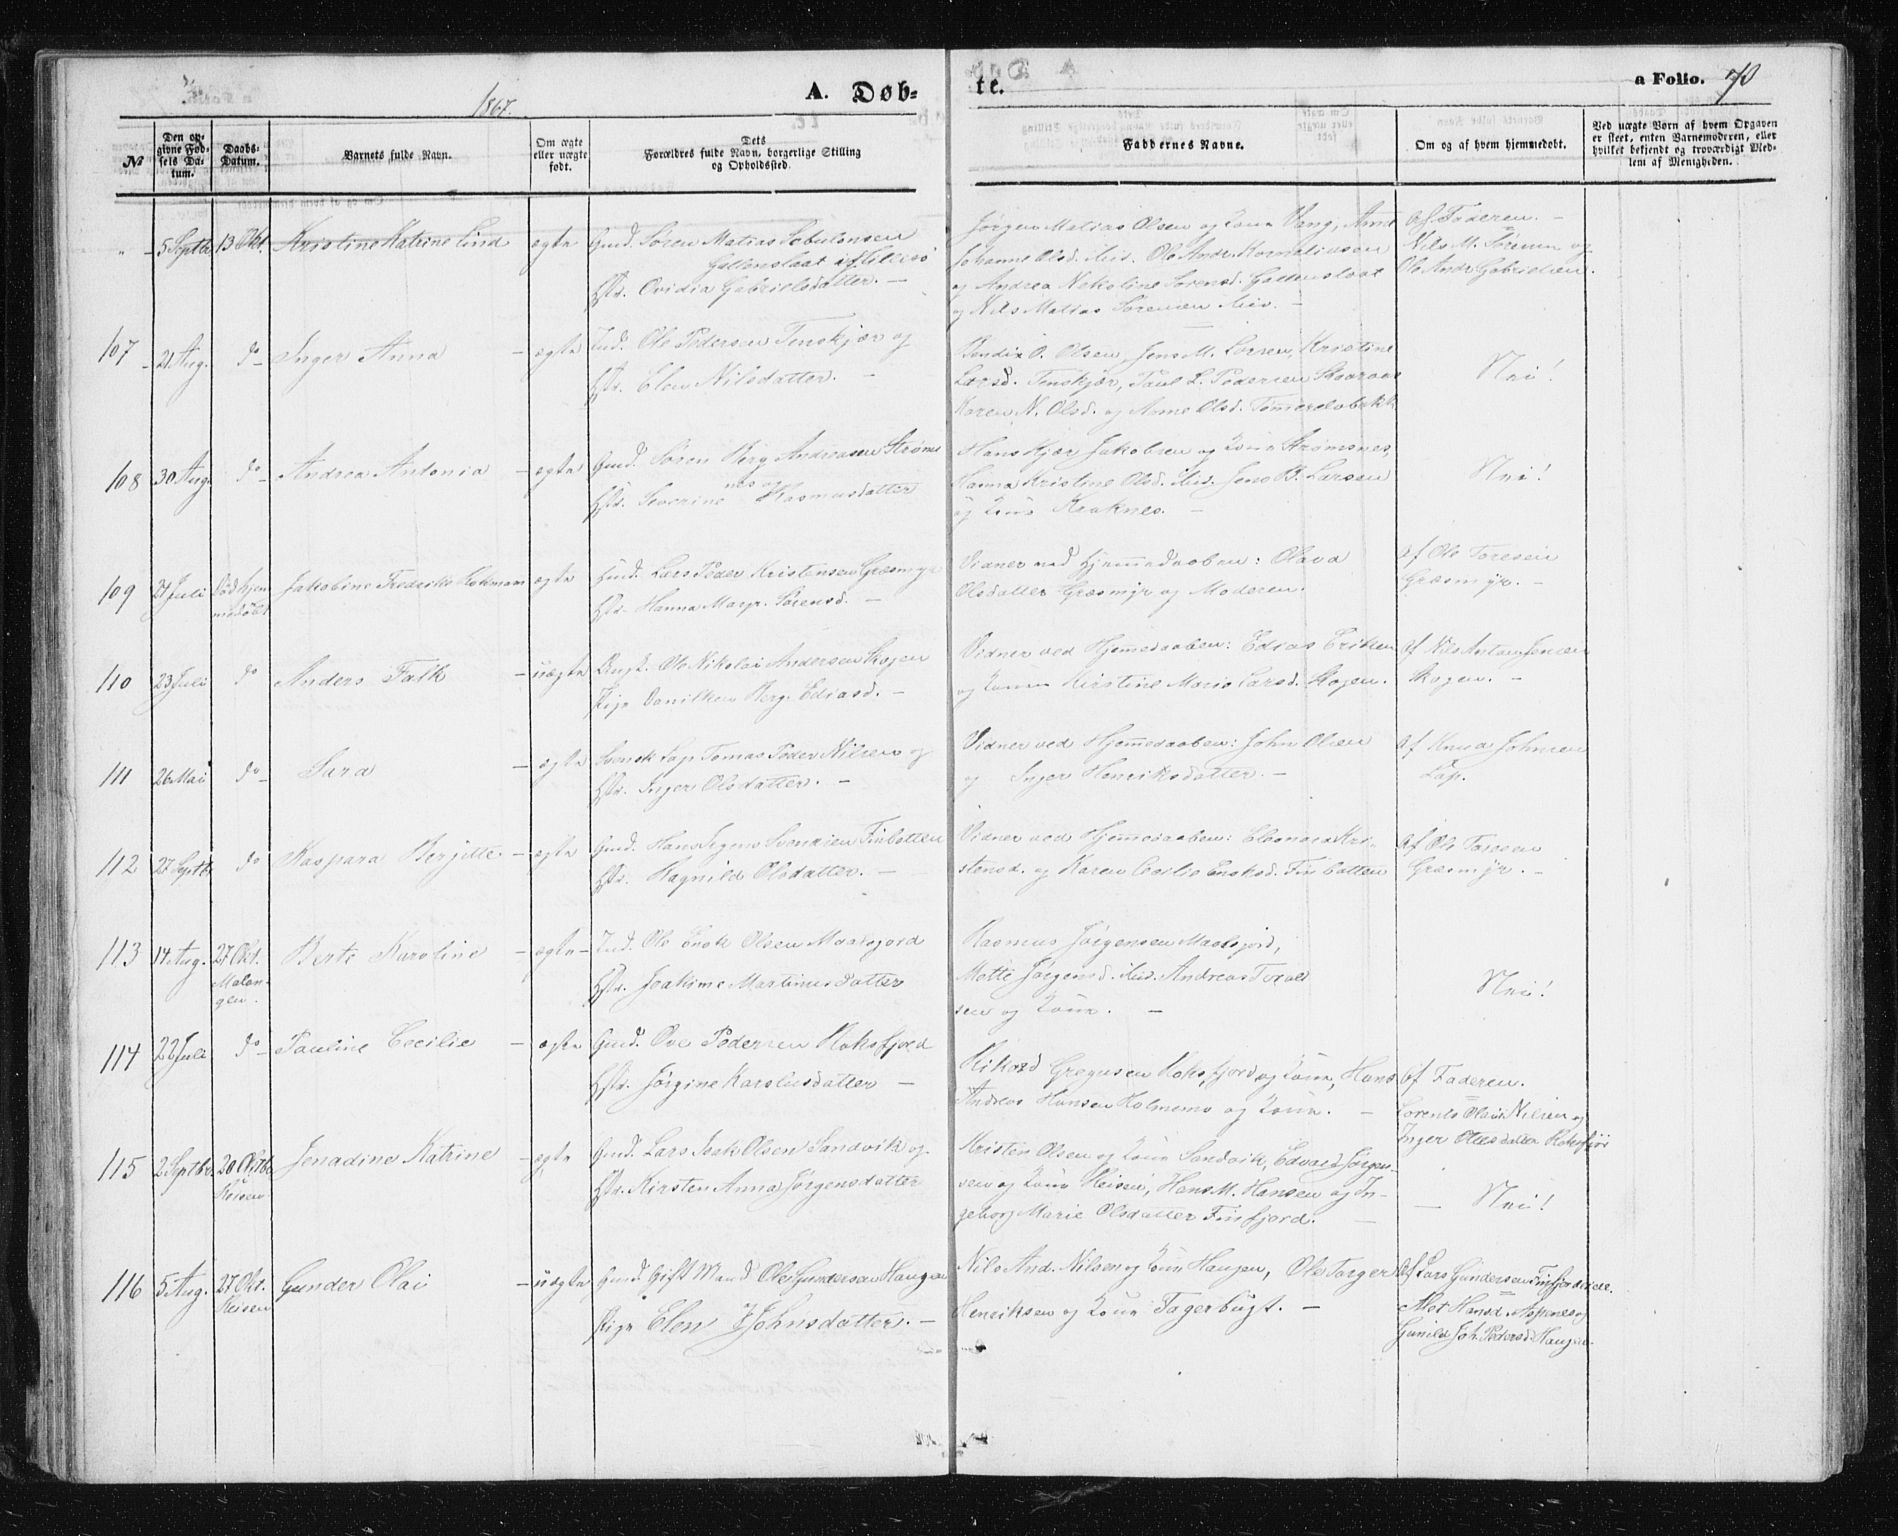 1867.
A. Døb-
te.
a Folio. 70
№
Den opgivne Fødsels Datum.
Daabs-Datum.
Barnets fulde Navn.
Om ægte eller uægte født.
Dets Forældres fulde Navn, borgerlige Stilling og Opholdssted.
Faddernes Navne.
Om og af hvem hjemmedøbt.
Ved uægte Børn af hvem Opgaven er skeet, enten Barnemoderen, eller hvilket bekjendt og troværdigt Medlem af Menigheden.
" - 5 Septbr 13 Okt. Kristine Katrine Lind ægte Gmd. Søren Matias Sebulonsen
Hstr. Ovidia Gabrielsdatter. -
Jørgen Matias Olsen og Kone Vang, Anne
Johanne Olsd. ibid. Ole Andr. Korneliussen
og Andrea Nekoline Sørensd.
og Nils Matias Sørensen ibid. -
Af Faderen. -
Nils M. Sørensen og
Ole Andr. Gabrielsen.
107 - 21 Aug. do - Inger Anna - ægte Ind. Ole Pedersen Tenskjær og
Hstr. Elen Nilsdatter. -
Bendix O. Olsen, Jens M. Larsen, Kristine
Larsd. Tenskjær, Paul L. Pedersen
Karen N. Olsd. og Anne Olsd.
Nei!
108 30 Aug. do - Andrea Antonia - ægte Gmd. Søren Berg Andreasen Strøms
nes og
Hstr. Severine Rasmusdatter
Hans Kjær Jakobsen og Kone Strømsnes,
Hanna Kristine Olsd. ibid. Jens B. Larsen
og Kone Kraknes. -
Nei!
109 27 Juli Død hjem
medøbt Jakobine Fredrikke ægte Gmd. Lars Peder Kristensen Græsmyr
Hstr. Hanna Margr. Sørensd. -
Vidner ved Hjemmedaaben: Olava
Olsdatter Græsmyr og Moderen.
af Ole Toresen
Græsmyr. -
110 23 Juli do Anders Falk - uægte Ungk. Ole Nikolai Andersen Skogen
Pige Danilken Berg. Ediasd. -
Vidner ved Hjemedaaben: Edias Eriksen
og Kone Kirstine Marie Larsd. Skogen.
af Nils Anton Jensen
Skogen. -
111 26 Mai do - Sara - ægte Svensk Lap Tomas Peder Nilsen og
Hstr. Inger Olsdatter. -
Vidner ved Hjemmedaaben: John Olsen
og Inger Henriksdatter. -
af Knud Johnsen
Lap.
112 27 Septbr do Kaspara Berjitte - ægte Gmd. Hans Finbotten
Hstr. Ragnild Olsdatter. -
Vidner ved Hjemmedaaben: Eleonora Kri-
stensd. og Karen Cecilie Enoksd. Finbotten
Af Ole Toresen
Græsmyr. -
113 14 Aug. 27 Okt.
Malan-
gen. Berte Karoline - ægte - Ind. Ole Enok Olsen Maalsfjord
Hstr. Joakime Martinusdatter
Rasmus Jørgensen Maalsfjord,
Mette Jørgensd. ibid. Andreas Tvral
sen og Kone. -
Nei!
114 22 Juli do - Pauline Cecilie - ægte Gmd. Ove Pedersen Roksfjord
Hstr. Jørgine Karolusdatter -
Rikard Gregusen Roksfjord og Kone, Hans
Andreas Hansen Holmenes og Kone. -
Af Faderen.
Lorents Olai Nilsen og
Inger Olesdatter Roksfjor
115 2 Septbr. 20 Oktbr
Reisen Jenadine Katrine - ægte Gmd. Lars Isak Olsen Sandvik og
Hstr. Kirsten Anna Jørgensdatter
Kristen Olsen og Kone Sandvik, Edvard Jørgen-
sen og Kone Reisen, Hans M. Hansen og In-
geborg Marie Olsdatter Finfjord. -
- Nei!
116 5 Aug. 27 Okt.
Reisen Gunder Olai - uægte Gmd. Gift Mand Ole Gundersen Haugen
Pige Elen J Johnsdatter. -
Nils And. Nilsen og Kone Haugen, Ole Torger
Henriksen og Kone Tagerbugt. -
Af Lars Gundersen Finfjordeidet.
Alet Hansd. Aspenes og
Gunild Joh. Pedersd. Haugen.